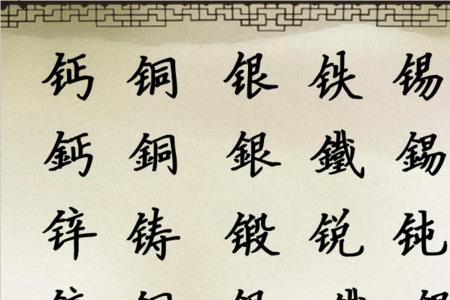 钙 铜 银 铁 锡
鈣 銅 銀 鐵 錫
锌 铸 锻 锐 钝